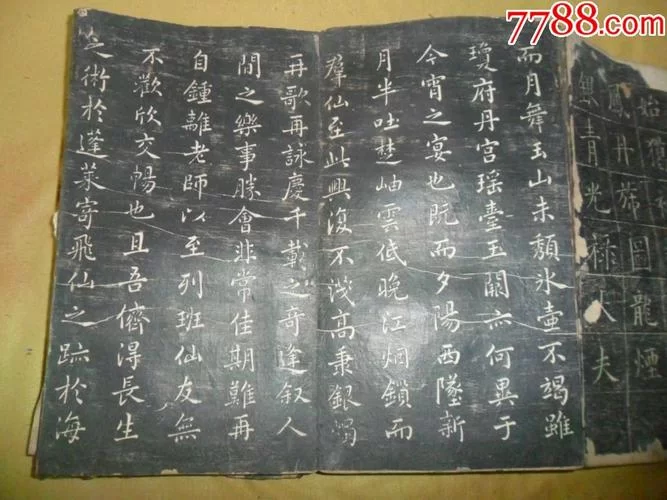 7788.com
始
丹旆圖龍煙
銀青光祿大夫
而月舞玉山未頹氷壺不竭雖
瓊府丹宮瑶臺玉闕亦何異于
今宵之宴也既而夕陽西墜新
月半吐楚岫雲低晚江烟鎖而
羣仙至此興復不淺高秉銀燭
再歌再詠慶千載之奇逢叙人
間之樂事勝會非常佳期難再
自鍾離老師以至列班仙友無
不歡欣交暢也且吾儕得長生
之術於蓬萊寄飛仙之跡於海